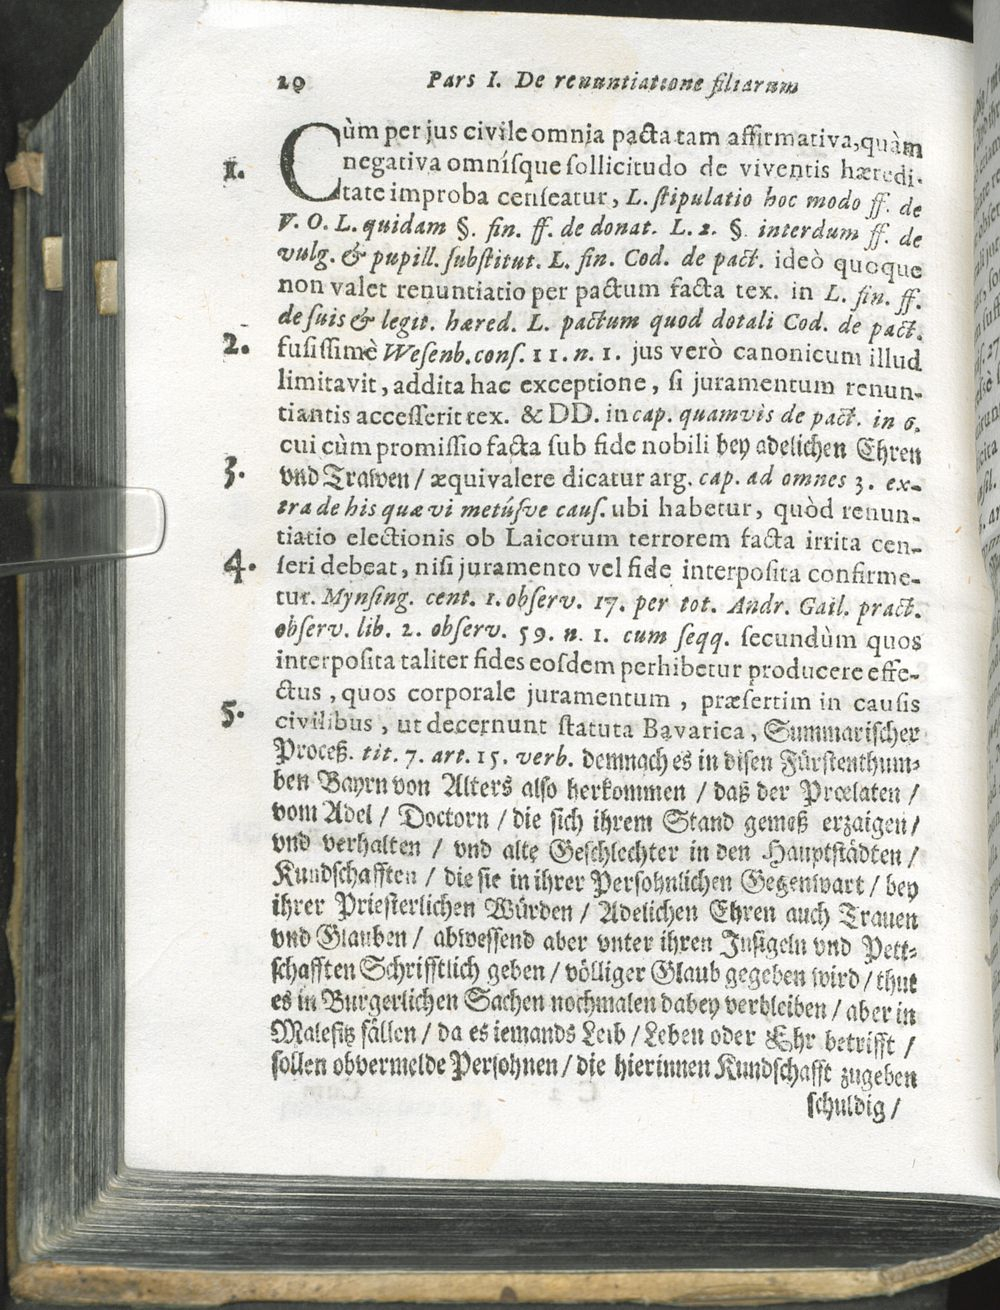 20 Pars I. De renuntiatione filiarum
Cùm per jus civile omnia pacta tam affirmativa, quàm
1. negativa omnísque sollicitudo de viventis hæredi-
tate improba censeatur, L. stipulatio hoc modo ff. de
V. O. L. quidam §. fin. ff. de donat. L. 2. §. interdum ff. de
vulg. & pupill. substitut. L. fin. Cod. de pact. ideò quoque
non valet renuntiatio per pactum facta tex. in L. fin. ff.
de suis & legit. hæred. L. pactum quod dotali Cod. de pact.
2. fusissimè Wesenb. cons. 11. n. 1. jus verò canonicum illud
limitavit, addita hac exceptione, si juramentum renun-
tiantis accesserit tex. & DD. in cap. quamvis de pact. in 6.
cui cùm promissio facta sub fide nobili bey adelichen Ehren
3. vnd Trawen / æquivalere dicatur arg. cap. ad omnes 3. ex-
tra de his quæ vi metúsve caus. ubi habetur, quòd renun-
tiatio electionis ob Laicorum terrorem facta irrita cen-
4. seri debeat, nisi juramento vel fide interposita confirme-
tur. Mynsing. cent. 1. observ. 17. per tot. Andr. Gail. pract.
observ. lib. 2. observ. 59. n. 1. cum seqq. secundùm quos
interposita taliter fides eosdem perhibetur producere effe-
ctus, quos corporale juramentum, præsertim in causis
5. civilibus, ut decernunt statuta Bavarica, Summarischer
Proceß. tit. 7. art. 15. verb. demnach es in disen Fürstenthum-
ben Bayrn von Alters also herkommen / daß der Prœlaten /
vom Adel / Doctorn / die sich ihrem Stand gemeß erzaigen /
vnd verhalten / vnd alte Geschlechter in den Hauptstädten /
Kundschafften / die sie in ihrer Persohnlichen Gegenwart / bey
ihrer Priesterlichen Würden / Adelichen Ehren auch Trauen
vnd Glauben / abwessend aber vnter ihren Insigeln vnd Pett-
schafften Schrifftlich geben / völliger Glaub gegeben wird / thut
es in Burgerlichen Sachen nochmalen dabey verbleiben / aber in
Malefitz fällen / da es iemands Leib / Leben oder Ehr betrifft /
sollen obvermelde Persohnen / die hierinnen Kundschafft zugeben
schuldig /